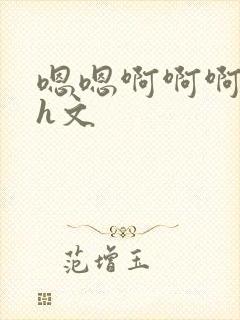 嗯嗯啊啊啊
h文
范增玉